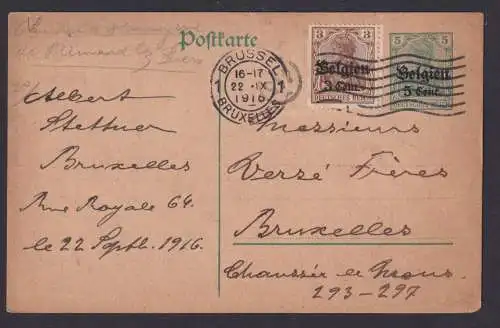 Postkarte
BRÜSSEL
16-17
1 22 -IX 1
1916
BRUXELLES
3 3
Belgien
3 Cent.
DEUTSCHES REICH
5 5
Belgien
5 Cent.
Albert
Stettner
Bruxelles
Rue Royale 64.
le 22 Septb. 1916.
Messieurs
Verzé Frères
Bruxelles
Chaussée de Mons
293-297